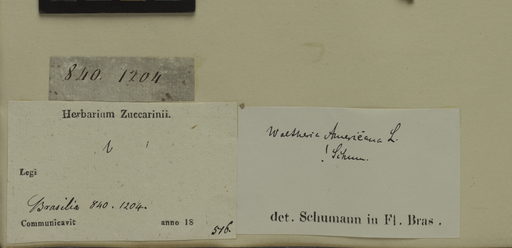 840. 1204
Herbarium Zuccarinii.
Legi
Brasilia 840. 1204.
Communicavit anno 18
516.
Waltheria Americana L.
! Schum.
det. Schumann in Fl. Bras.